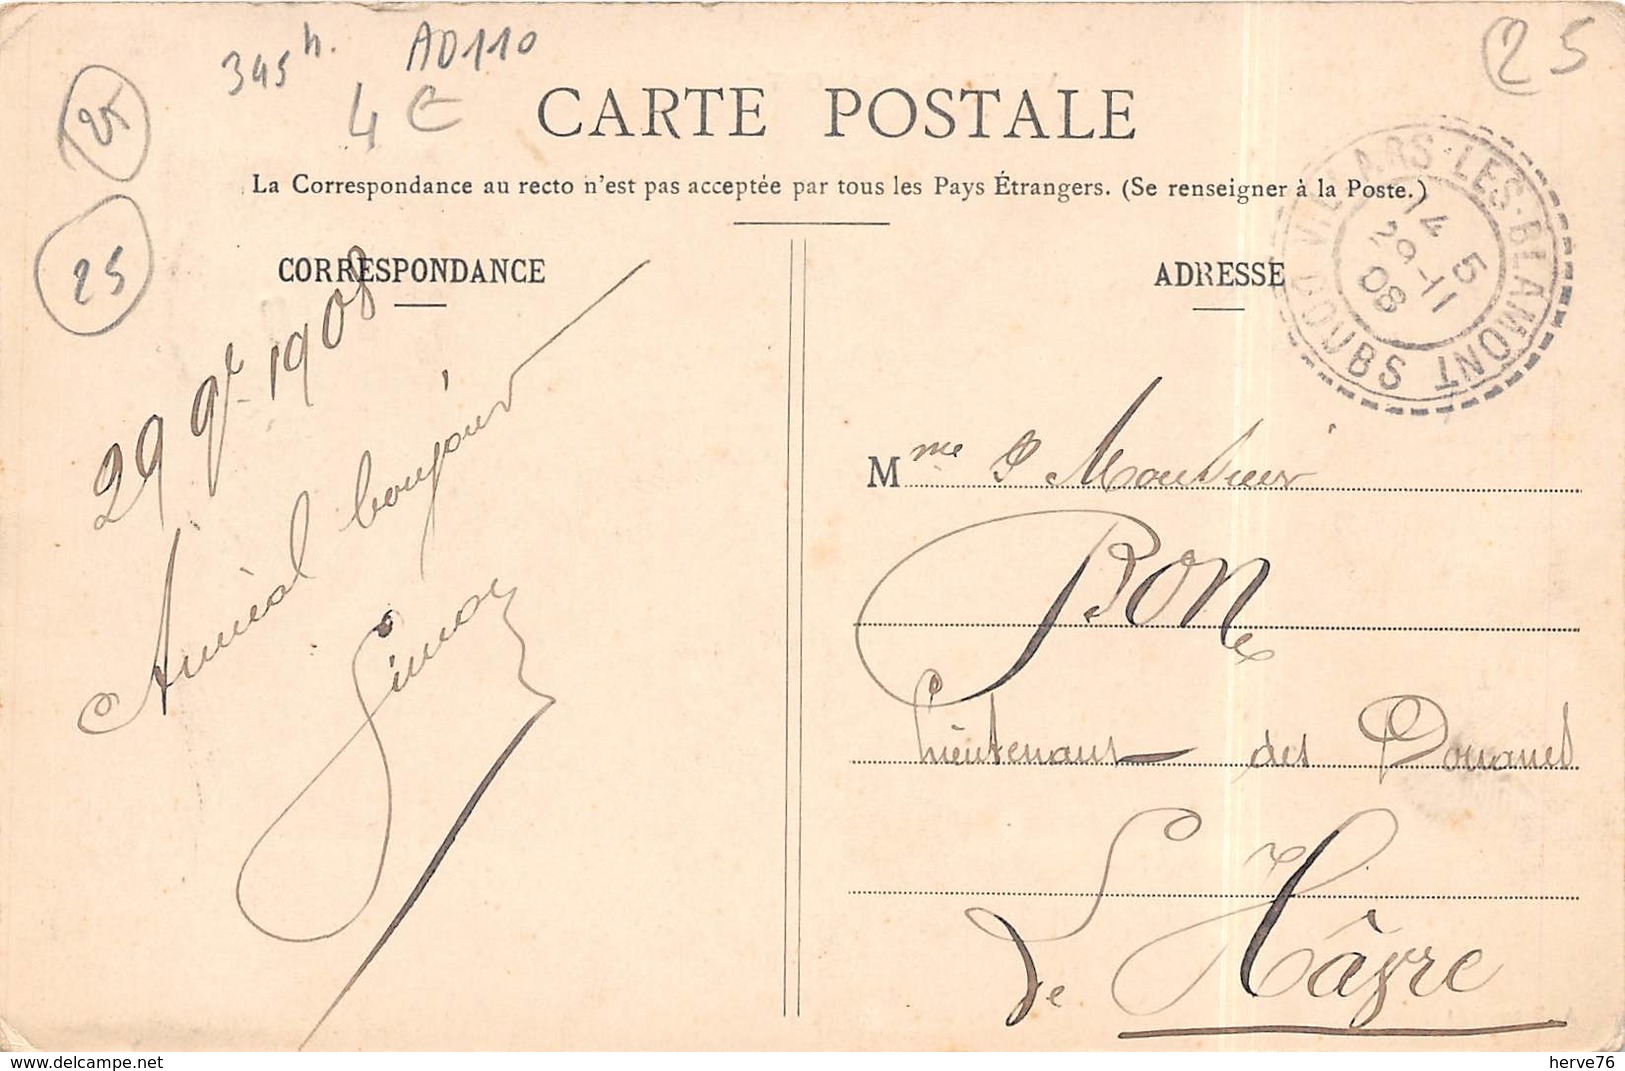 345 h. AD110
4 €
25
25
25
CARTE POSTALE
La Correspondance au recto n'est pas acceptée par tous les Pays Étrangers. (Se renseigner à la Poste.)
CORRESPONDANCE
29 9r 1908
Amical bonjour
Simon
ADRESSE
VILLARS-LES-BLAMONT
DOUBS
14 5
29-11
08
Mme & Monsieur
BON
Lieutenant des Douanes
Le Hâvre
delcampe.net
herve76